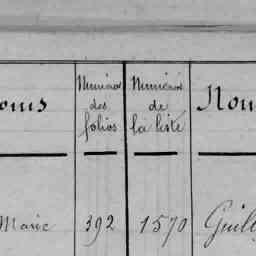 Numéros Numéros
oms des de Nou
folios la liste
Marie 392 1570 Guil